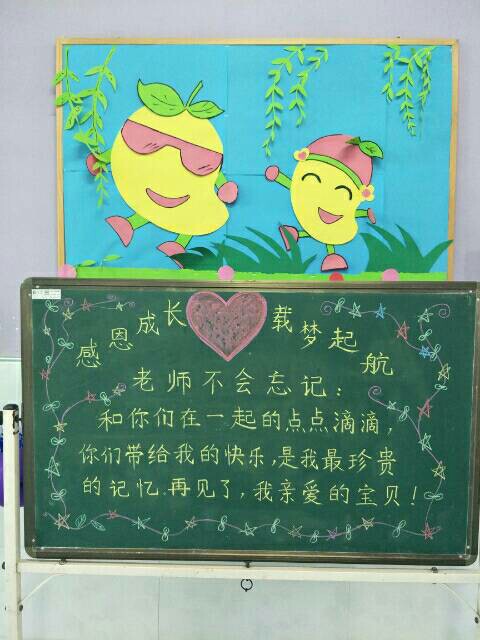 感恩成长 载梦起航
老师不会忘记：
和你们在一起的点点滴滴，
你们带给我的快乐，是我最珍贵
的记忆.再见了，我亲爱的宝贝！